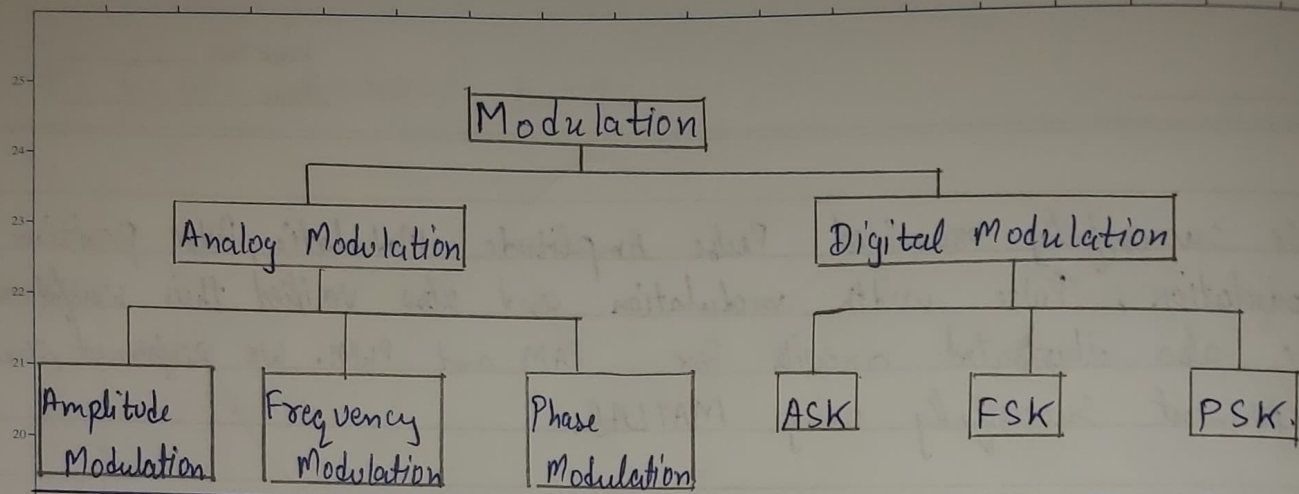 25
Modulation
24
23
Analog Modulation
Digital Modulation
22
21
Amplitude
Modulation
Frequency
Modulation
Phase
Modulation
ASK
FSK
PSK.
20